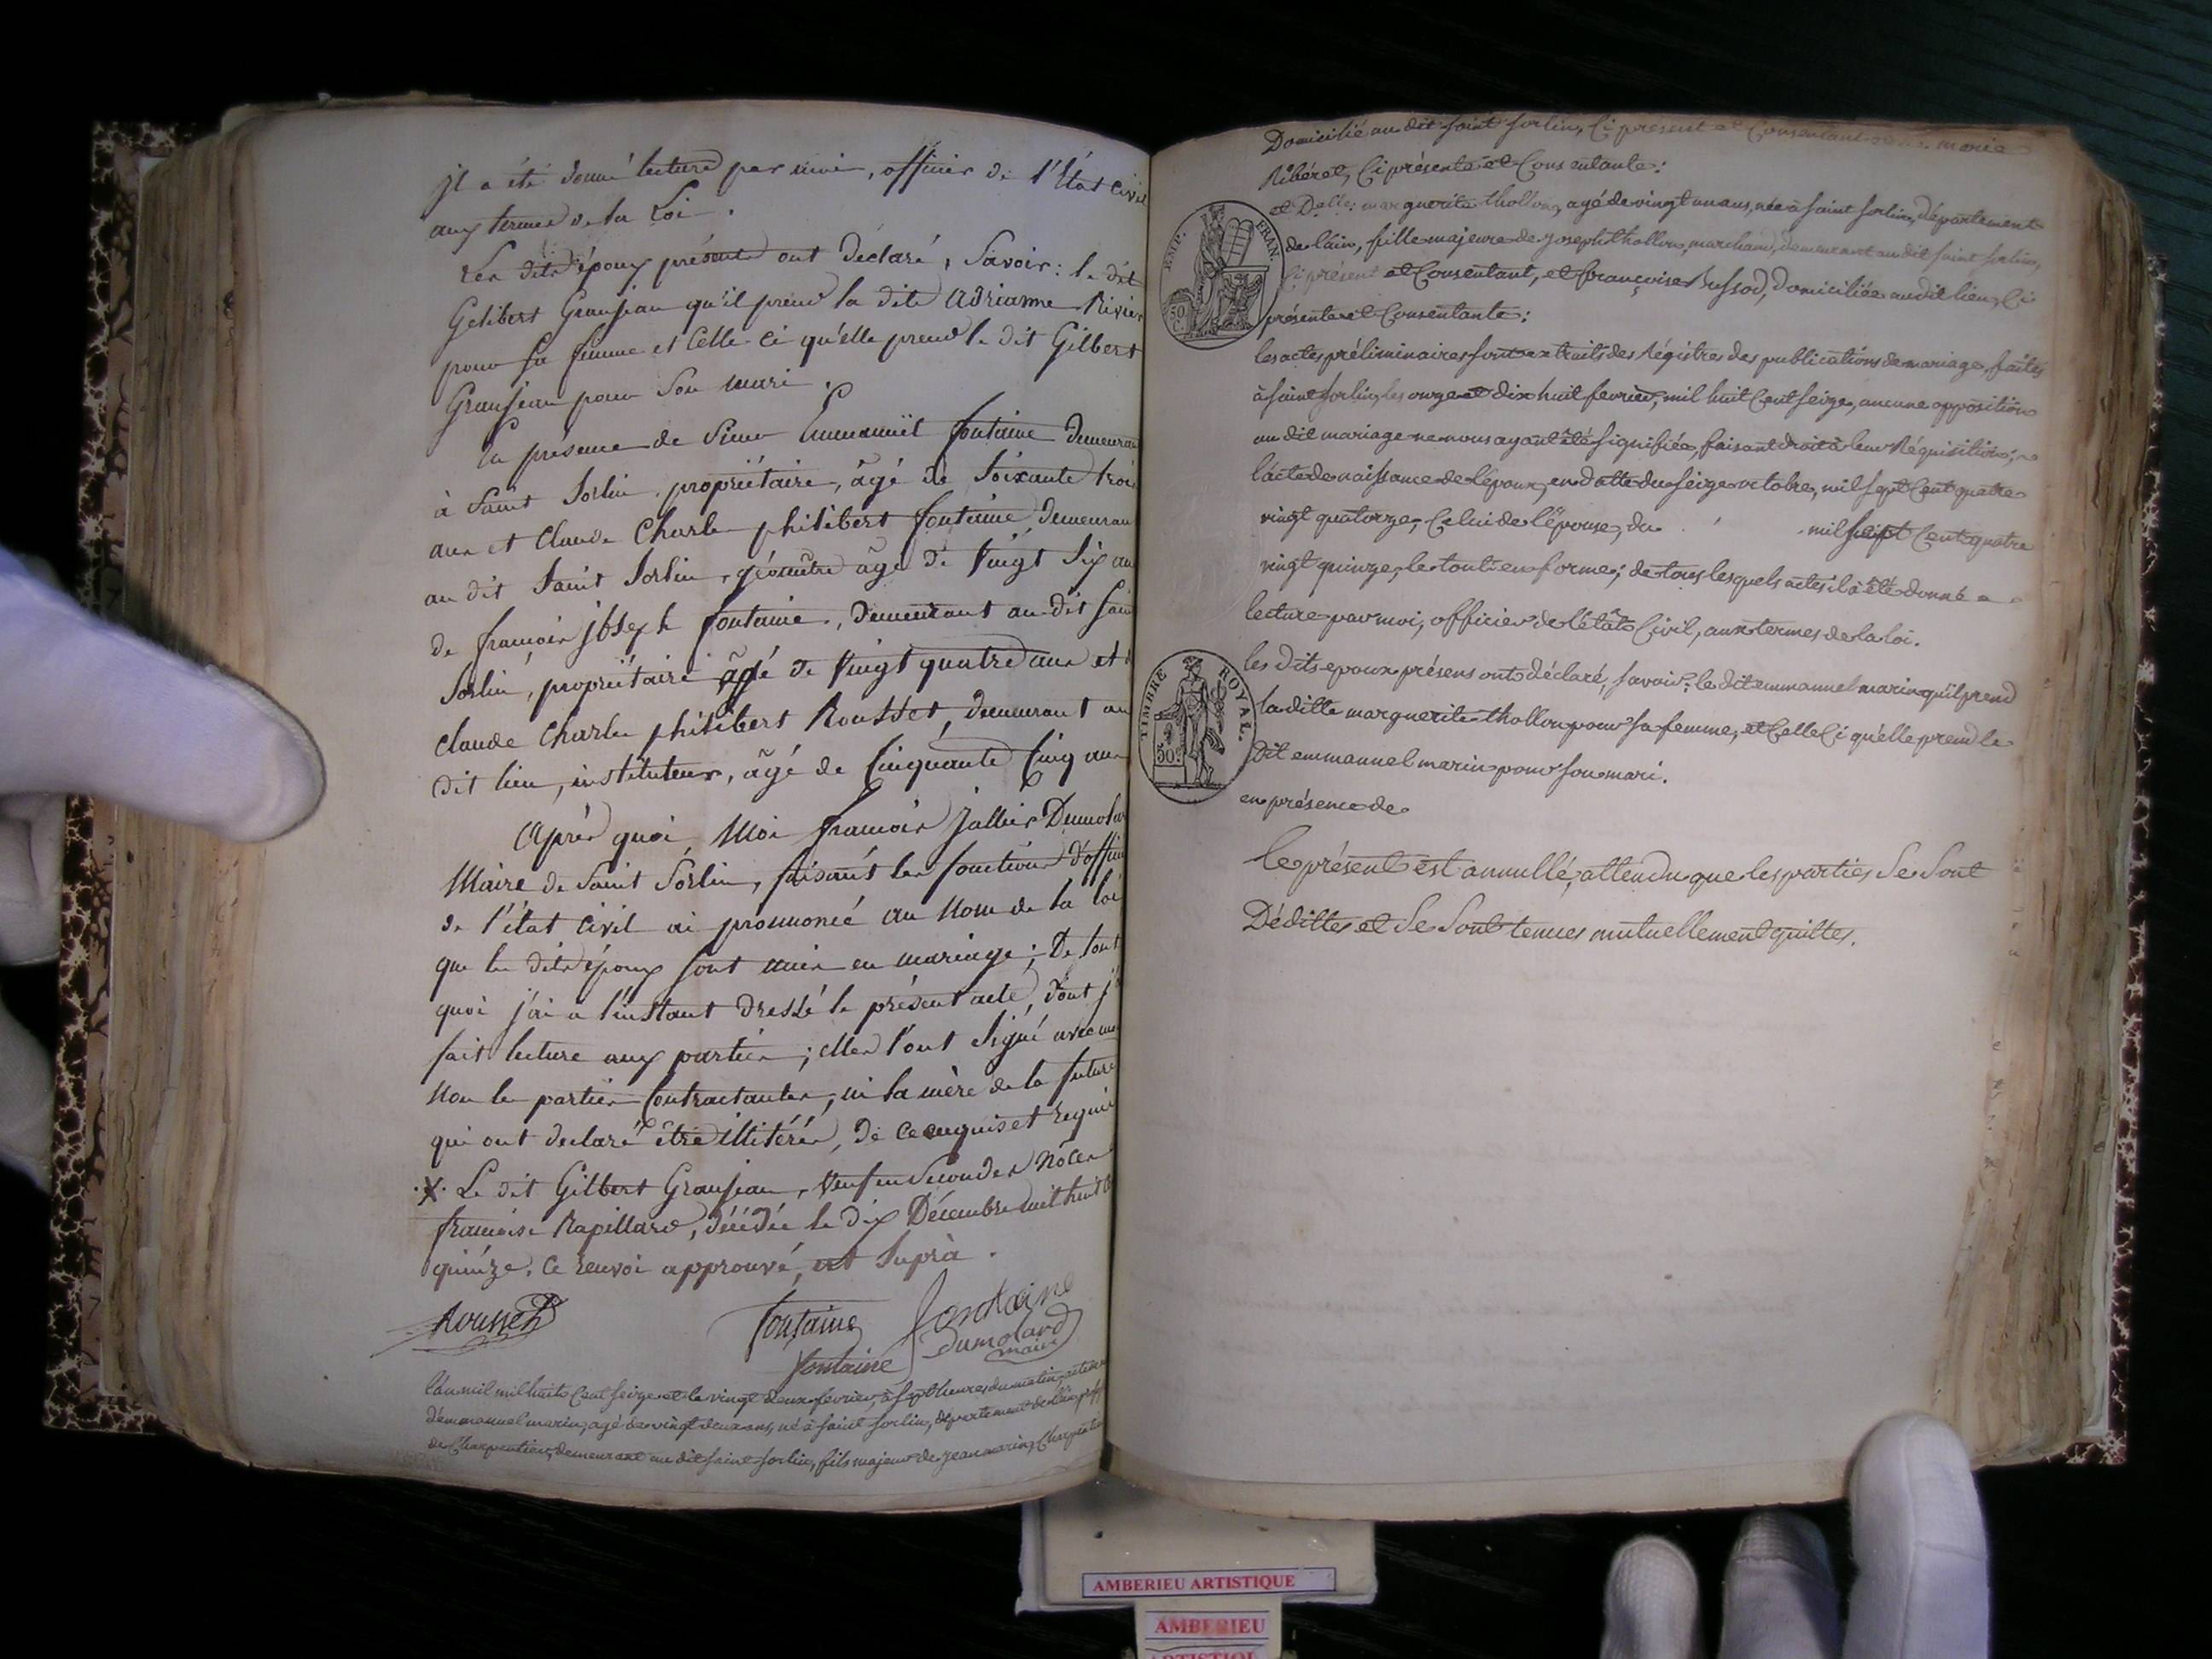 jl a été donné lecture par moi, officier de l'État Civil
aux termes de la Loi.
Les dits époux présents ont déclaré, Savoir: le dit
Gilibert Granjean qu'il prend la dite Adrianne Rivier
pour sa femme et Celle-Ci qu'elle prend le dit Gilbert
Granjean pour Son mari.
En présence de Sieur Emmanuël fontaine Demeurant
à Saint Sorlin, propriétaire, âgé de Soixante trois
ans et Claude Charle philibert fontaine, Demeurant
au dit Saint Sorlin, géomètre âgé de Vingt Six ans
de françois joseph fontaine, Demeurant au dit Saint
Sorlin, propriétaire âgé de Vingt quatre ans et
Claude Charles philibert Rousset, Demeurant au
dit lieu, instituteur, âgé de Cinquante Cinq ans
Après quoi, Moi françois jallier Dumolard
Maire de Saint Sorlin, faisant les fonctions d'officier
de l'état Civil ai prononcé au Nom de la loi
que les dits époux sont unis en mariage; De tout
quoi j'ai à l'instant dressé le présent acte, dont j'ai
fait lecture aux parties; elles l'ont Signé avec moi
Non les parties Contractantes, ni la mère de la future
qui ont déclaré être illitérés, de ce enquis et requis
.X. Le dit Gilbert Granjean, Veuf en Secondes Nôces
françoise Rapillard, décédée le dix Décembre mil huit Cent
quinze. Ce renvoi approuvé, ut Suprà.
Rousset
fontaine fontaine
Dumolard
maire
fontaine
L'an mil mil huit Cent seize et le vingt deux fevrier, à sept heures du matin, acte de
d'emmanuel marin, agé de vingt deux ans, né à saint sorlin, département de l'ain, prof
de Charpentier, demeurant au dit saint sorlin, fils majeur de jean marin, Charpentier
Domicilié au dit saint sorlin, Ci présent et Consentant marie
Ribéret, Ci présente et Consentante:
EMP. FRAN.
50 C.
et Delle: marguerite thollon, agé de vingt un ans, née à saint sorlin, département
de l'ain, fille majeure de joseph thollon, marchand, demeurant au dit saint sorlin,
Ci présent et Consentant, et françoise Bussod, domiciliée au dit lieu, Ci
présente et Consentante:
les actes préliminaires sont extraits des Régistres des publications de mariage, faites
à saint sorlin, les onze et dix huit fevrier, mil huit Cent seize, aucune opposition
au dit mariage ne nous ayant été signifiée, faisant droit à leur Réquisition;
l'acte de naissance de l'époux, en datte du seize octobre, mil sept Cent quatre
vingt quatorze, Celui de l'épouse, du mil sept Cent quatre
vingt quinze, le tout en forme; de tous lesquels actes il a été donné
lecture par moi, officier de l'état Civil, aux termes de la loi.
TIMBRE ROYAL.
50c
les dits epoux présens ont déclaré, savoir: le dit emmanuel marin qu'il prend
la ditte marguerite thollon pour sa femme, et Celle Ci qu'elle prend le
dit emmanuel marin pour son mari.
en présence de
le présent est annullé, attendu que les parties Se Sont
Dédittes et Se Sont tenues mutuellement quittes.
AMBERIEU ARTISTIQUE
AMBERIEU
ARTISTIQUE